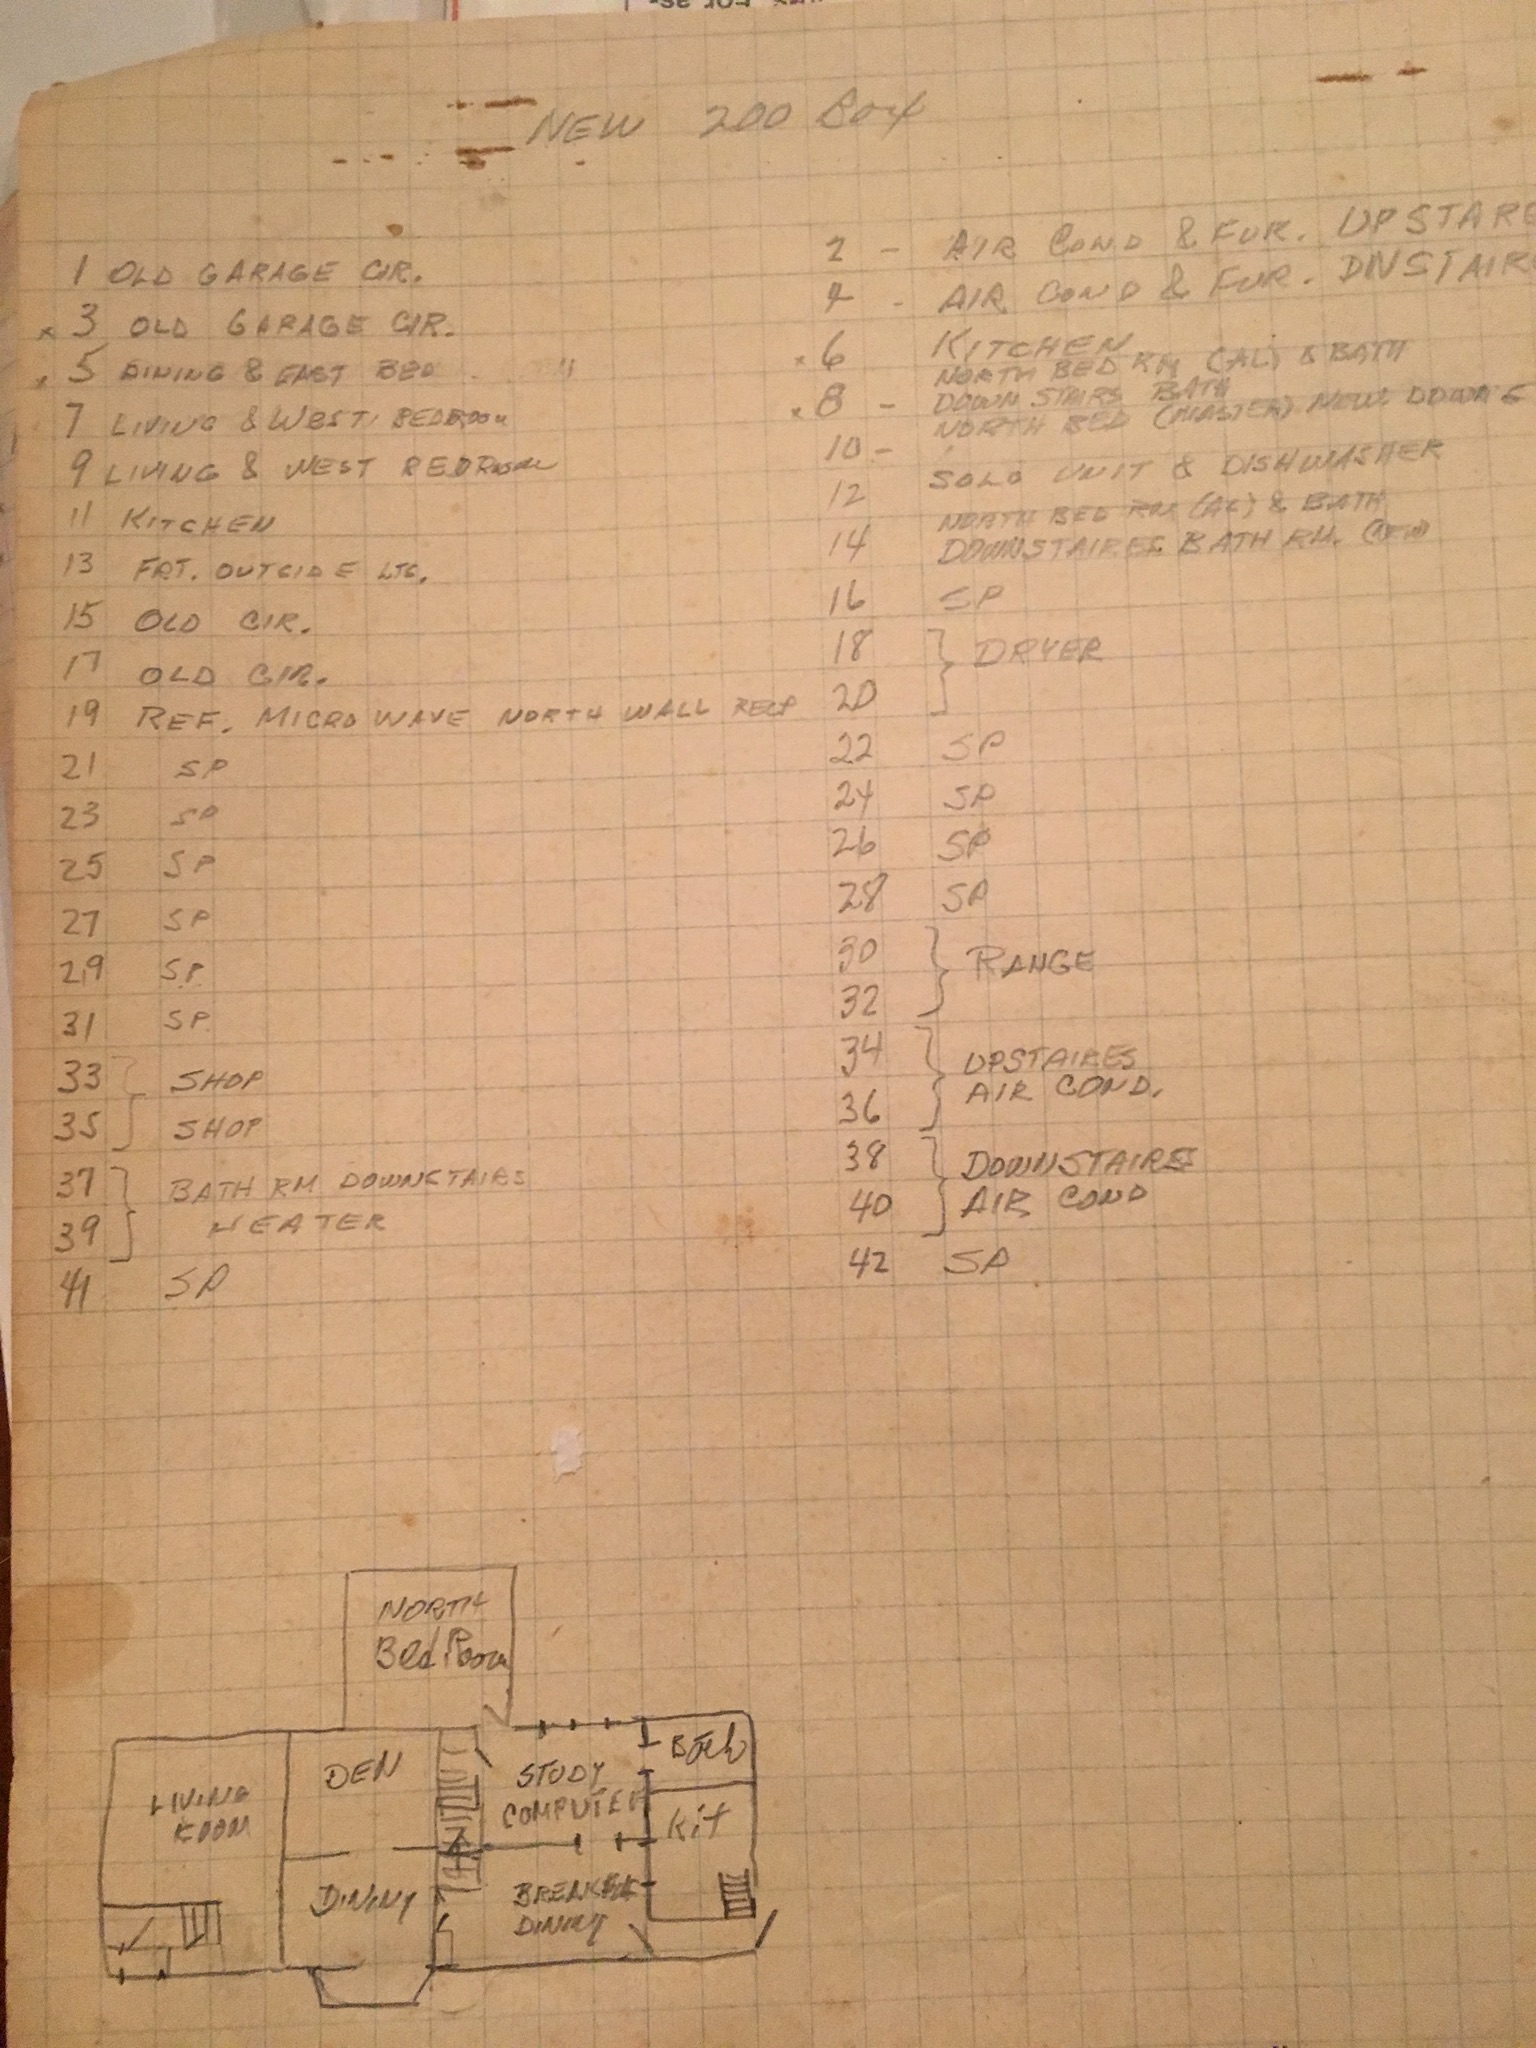 NEW 200 Box
1 OLD GARAGE CIR.
x 3 OLD GARAGE CIR.
x 5 DINING & EAST BED "
7 LIVING & WEST BEDROOM
9 LIVING & WEST BEDROOM
11 KITCHEN
13 FRT. OUTSIDE LTG.
15 OLD CIR.
17 OLD CIR.
19 REF. MICROWAVE NORTH WALL RECP
21 SP
23 SP
25 SP
27 SP
29 SP.
31 SP.
33 } SHOP
35 } SHOP
37 } BATH RM DOWNSTAIRS
39 } HEATER
41 SP
2 - AIR COND & FUR. UPSTARE
4 - AIR COND & FUR. DNSTAIR
x 6 KITCHEN
NORTH BED RM (AL) & BATH
x 8 - DOWN STAIRS BATH
NORTH BED (MASTER) NEW
10 -
12 SOLO UNIT & DISHWASHER
NORTH BED RM (AL) & BATH
14 DOWNSTAIRES BATH RM.
16 SP
18 } DRYER
20
22 SP
24 SP
26 SP
28 SP
30 } RANGE
32
34 } UPSTAIRES
36 AIR COND.
38 } DOWNSTAIRES
40 AIR COND
42 SP
NORTH
Bed Room
LIVING
ROOM
DEN
STUDY
COMPUTER
Bath
Kit
DINING
BREAKFAST
DINING